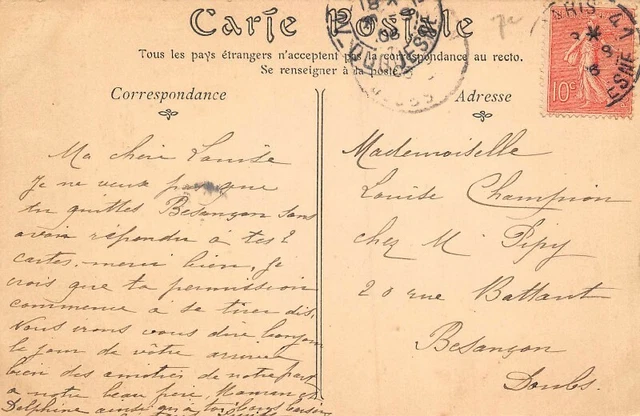 Carte Postale
Tous les pays étrangers n'acceptent pas la correspondance au recto.
Se renseigner à la poste
Correspondance
Adresse
10c
Ma chère Louise
Je ne veux pas que
tu quittes Besançon sans
avoir répondu à tes 2
cartes, merci bien, je
crois que ta permission
commence à se tirer dis,
Nous irons vous dire bonjour
le jour de vôtre arrivée
bien des amitiés de notre part
a notre beau frère, Maman et
Delphine ainsi qu'a
Mademoiselle
Louise Champion
chez M Pipy
20 rue Battant
Besançon
Doubs.